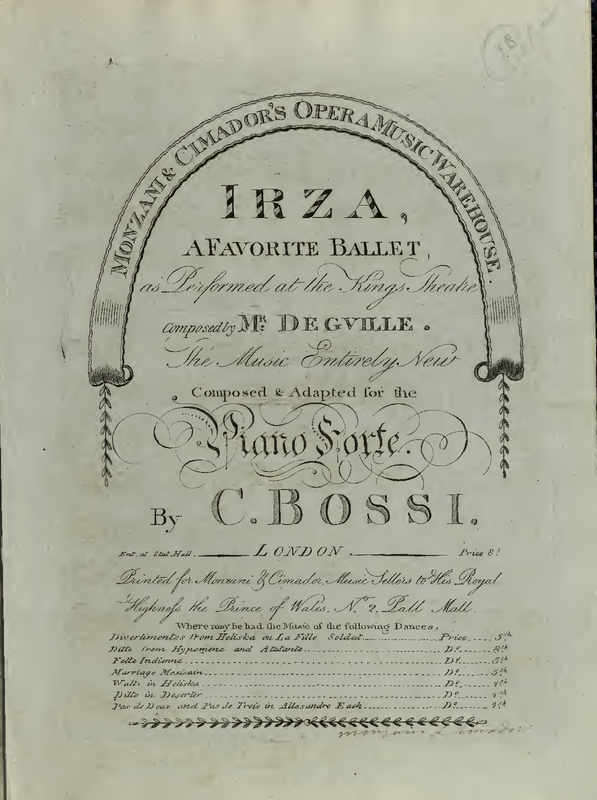 18
MONZANI & CIMADOR'S OPERA MUSIC WAREHOUSE.
IRZA,
A FAVORITE BALLET,
as Performed at the Kings Theatre
Composed by Mr. DEGVILLE.
The Music Entirely New
Composed & Adapted for the
Piano Forte.
By C. BOSSI.
Ent. at Stat. Hall. LONDON. Price 8s
Printed for Monzani & Cimador, Music Sellers to His Royal
Highness the Prince of Wales, No. 2, Pall Mall.
Where may be had the Music of the following Dances.
Divertimentos from Heliska ou La Fille Soldat Price 5sh
Ditto from Hypomene and Atalante Do. 8sh
Fette Indienne Do. 5sh
Marriage Mexicain Do. 5sh
Walts in Heliska Do. 1sh
Ditto in Deserter Do. 1sh
Pas de Deux and Pas de Trois in Allesandre Each Do. 1sh